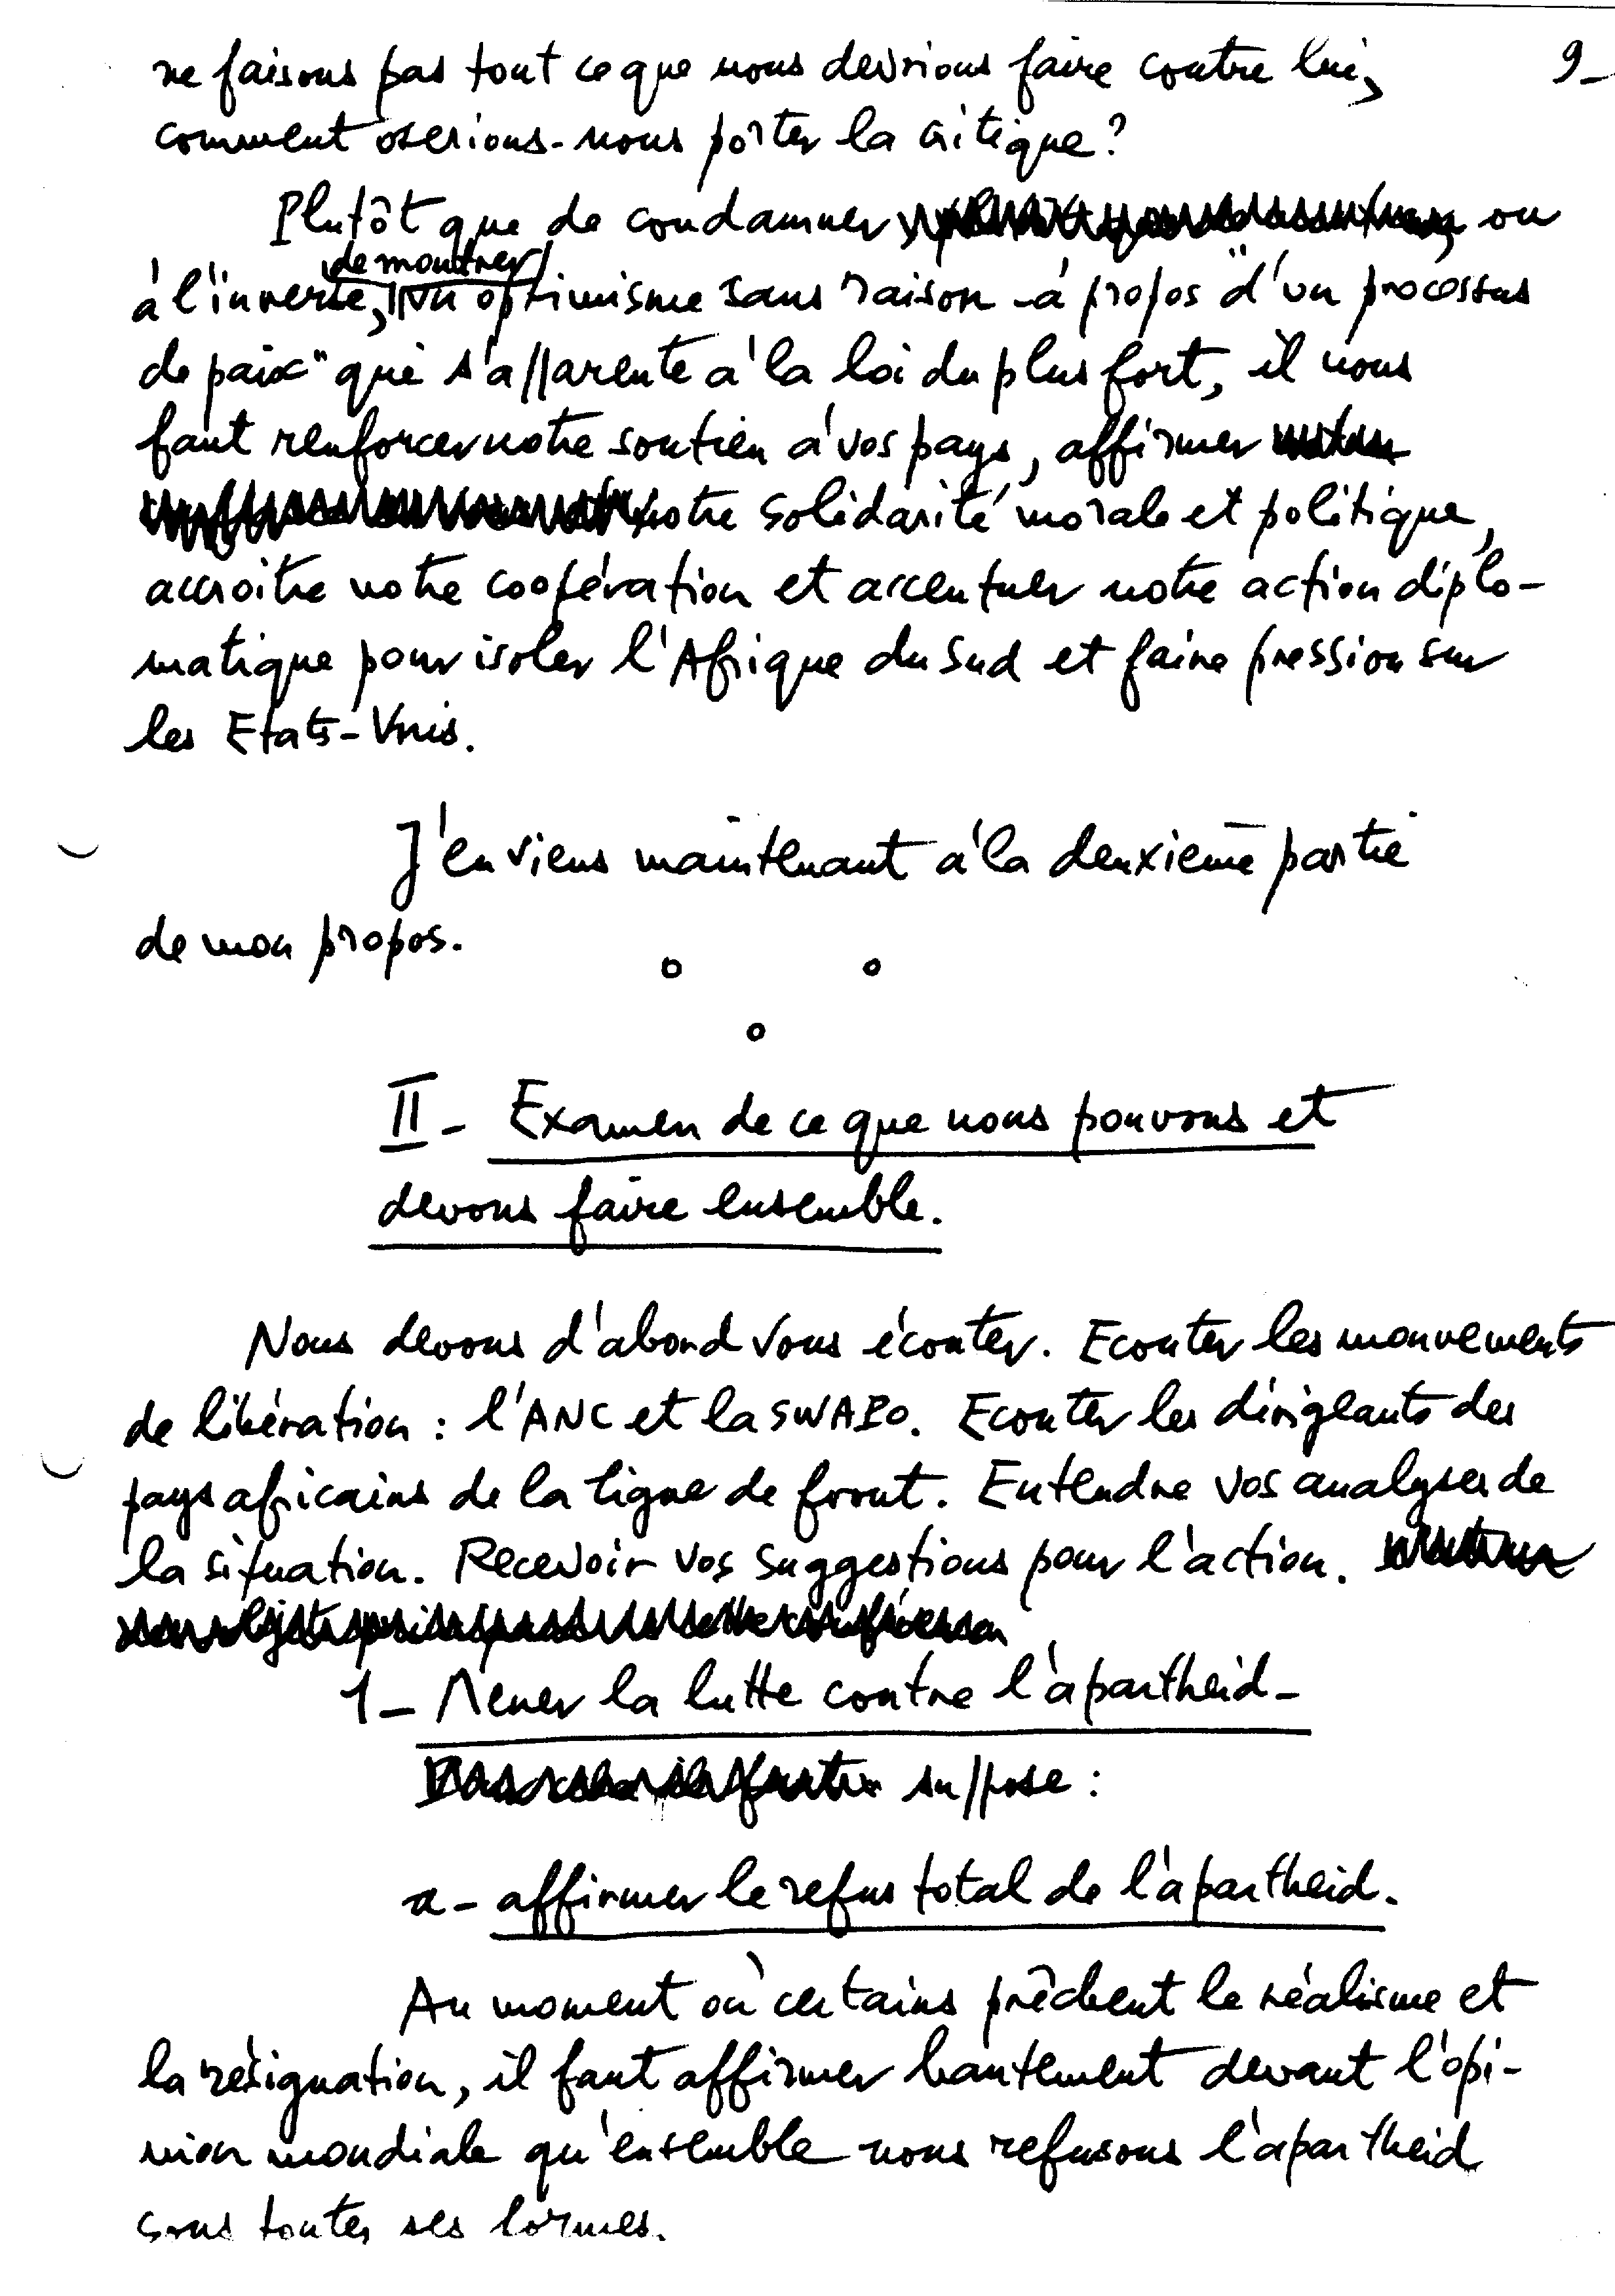 9_
ne faisons pas tout ce que nous devrions faire contre lui,
comment oserions-nous porter la critique?
Plutôt que de condamner ou
de montrer
à l'inverse, un optimisme sans raison à propos "d'un processus
de paix" qui s'apparente à la loi du plus fort, il nous
faut renforcer notre soutien à vos pays, affirmer
notre solidarité morale et politique,
accroître notre coopération et accentuer notre action diplo-
matique pour isoler l'Afrique du Sud et faire pression sur
les Etats-Unis.
J'en viens maintenant à la deuxième partie
de mon propos.
II - Examen de ce que nous pouvons et
devons faire ensemble.
Nous devons d'abord vous écouter. Ecouter les mouvements
de libération : l'ANC et la SWAPO. Ecouter les dirigeants des
pays africains de la ligne de front. Entendre vos analyses de
la situation. Recevoir vos suggestions pour l'action.
1 - Mener la lutte contre l'apartheid -
suppose :
a - affirmer le refus total de l'apartheid.
Au moment où certains prêchent le réalisme et
la résignation, il faut affirmer hautement devant l'opi-
nion mondiale qu'ensemble nous refusons l'apartheid
sous toutes ses formes.